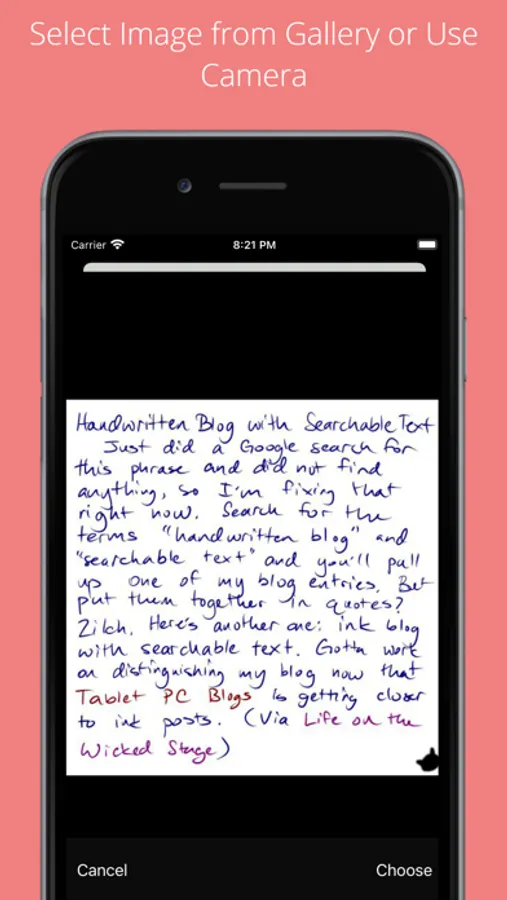 Select Image from Gallery or Use
Camera
Carrier
8:21 PM
Handwritten Blog with Searchable Text
Just did a Google search for
this phrase and did not find
anything, so I'm fixing that
right now. Search for the
terms "handwritten blog" and
"searchable text" and you'll pull
up one of my blog entries. But
put them together in quotes?
Zilch. Here's another one: ink blog
with searchable text. Gotta work
on distinguishing my blog now that
Tablet PC Blogs is getting closer
to ink posts. (Via Life on the
Wicked Stage)
Cancel
Choose